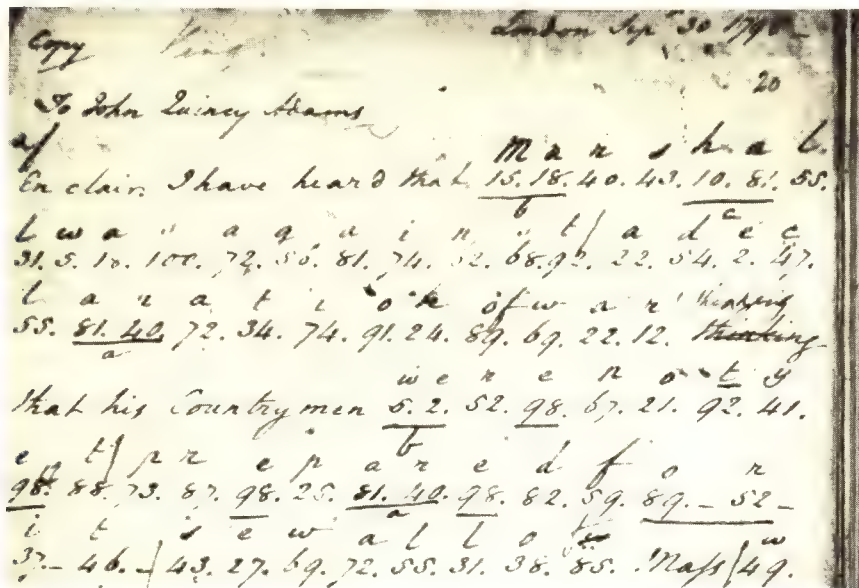 London Sep. 30 179
Copy King.
20
To John Quincy Adams
a/
M a r s h a l.
En clair. I have heard that 15. 18. 40. 43. 10. 81. 55.
b c
l w a s a g a i n s t / a d e c
31. 5. 18. 100. 72. 56. 81. 74. 52. 68. 92. 22. 54. 2. 47.
l a r a t i o n of w a r thinking
55. 81. 40. 72. 34. 74. 91. 24. 89. 69. 22. 12. thinking
a
w e r e n o t y
that his Countrymen 5. 2. 52. 98. 67. 21. 92. 41.
b
e t / p r e p a r e d f o r
98. 88. 73. 87. 98. 25. 81. 40. 98. 82. 59. 89. – 52 –
a
i t s e w a l l o
37. – 46. – / 43. 27. 69. 72. 55. 31. 38. 85. Mass / 49.
w